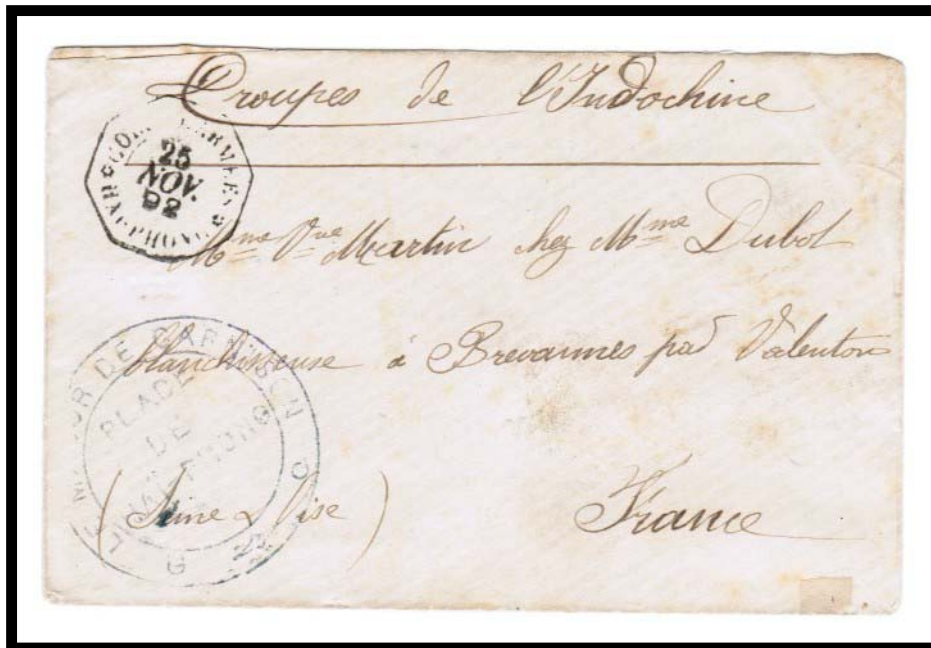 Troupes de l'Indochine
CORR. D.ARMEES
25
NOV.
92
HAI-PHONG
Mme Vve Martin chez Mme Dubot
blanchisseuse à Brevannes par Valenton
LE MAJOR DE GARNISON
PLACE
DE
HAI-PHONG
(Seine & Oise)
France